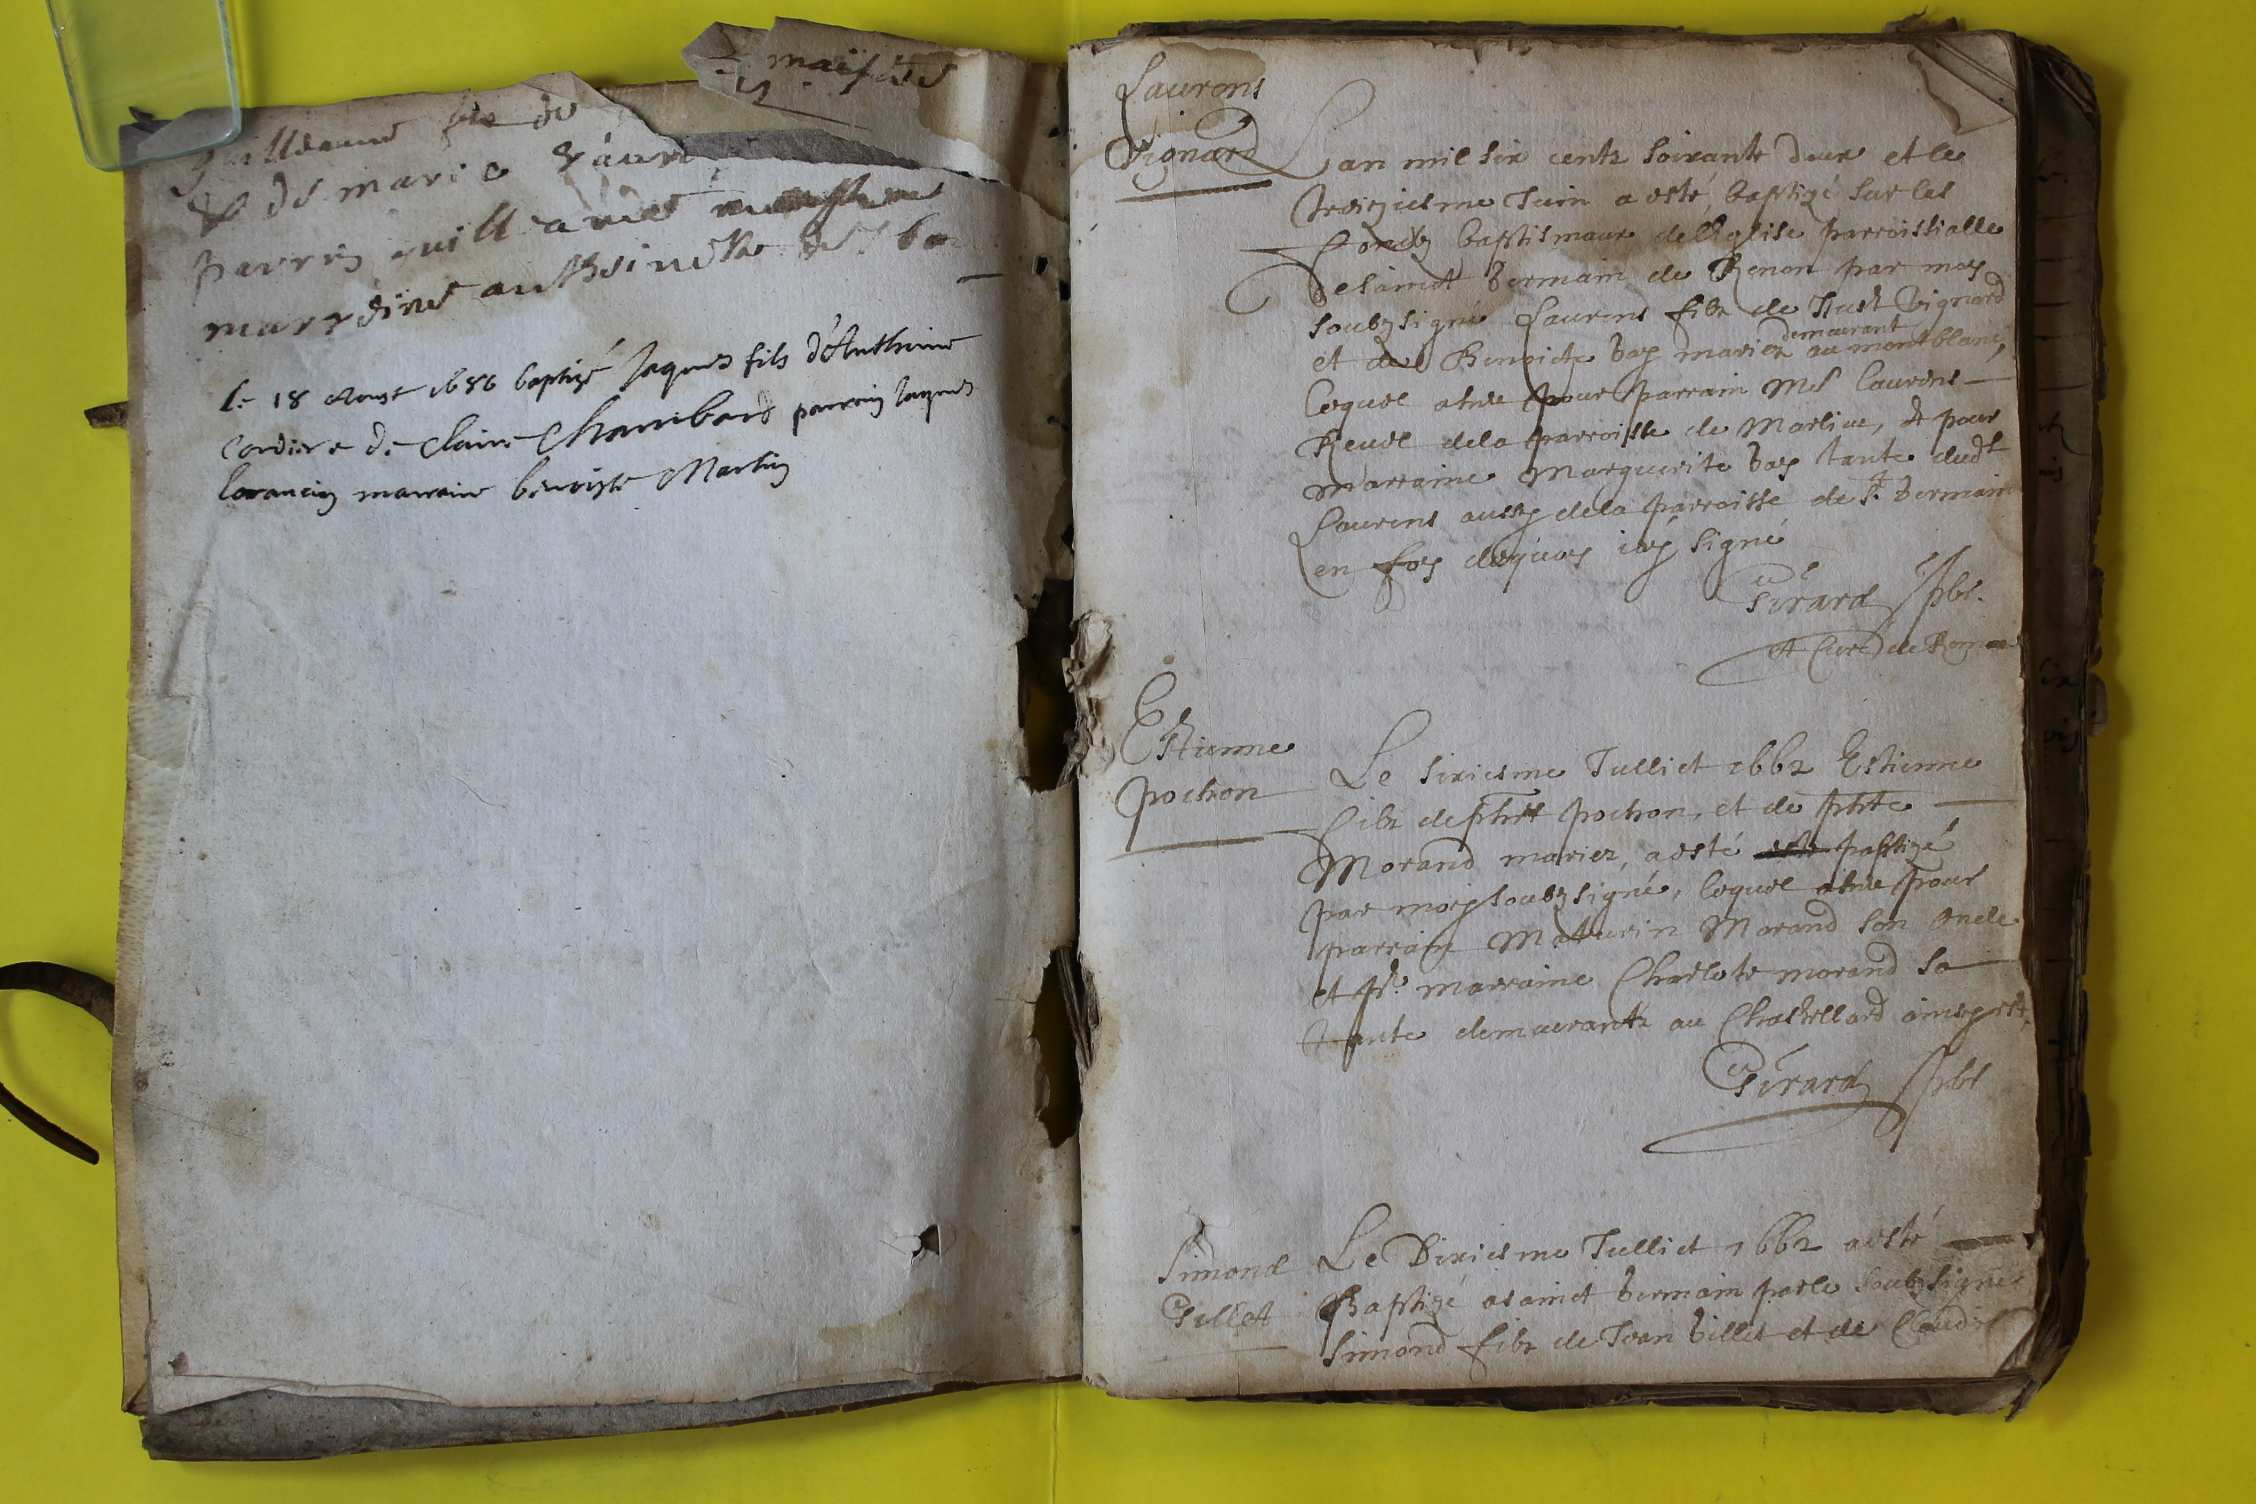 maistre
guilleaume fils de
& de marie
parrin guilleaume
marreine anthoinette de
Le 18 Aoust 1686 baptizé Jaques fils d'Anthoine
Cordier e de Claire Chambard parrain Jaques
marraine benoiste Martin
Laurens
Vignard
Lan mil six centz soixante deux et le
treiziesme Juin a esté baptizé sur les
fondz baptismaux de l'Eglise parroissialle
de sainct Germain de Renon par moy
soubzsigné Laurens filz de Just Vignard
et de Benoicte bay mariez demeurant au montblanc,
lequel a heu pour parrain Mre Laurens
Revel de la parroisse de Marlieu, & pour
marraine Marguerite bay tante dudt
Laurens aussy de la parroisse de St. Germain
en foy dequoy iay signé
Girard pbr.
et Curé de Romans
Estienne
pochon
Le sixiesme Julliet 1662 Estienne
filz de phs pochon, et de phte
Morand mariez, a esté baptizé
par moy soubzsigné, lequel a heu pour
parrain Maturin Morand son oncle
et pr. marraine Charlote morand sa
tante demeurantz au Chastellard
Girard pbr
Simond
Gillet
Le Dixiesme Julliet 1662 a esté
Baptizé a sainct Germain par le soubzsigné
Simond filz de Jean Gillet et de Claudi